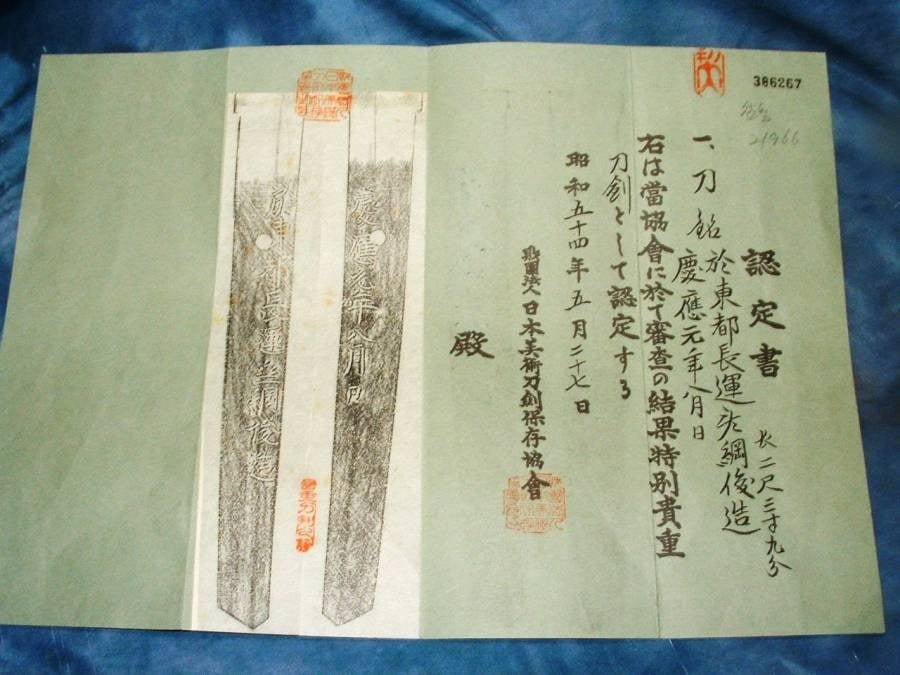 386267
21966
認定書
一、刀 銘 於東都長運斎綱俊造 長二尺三寸九分
慶應元年八月日
右は當協會に於て審査の結果特別貴重
刀剣として認定する
昭和五十四年五月二十七日
財團法人日本美術刀剣保存協會
殿
慶應元年八月日
於東都長運斎綱俊造